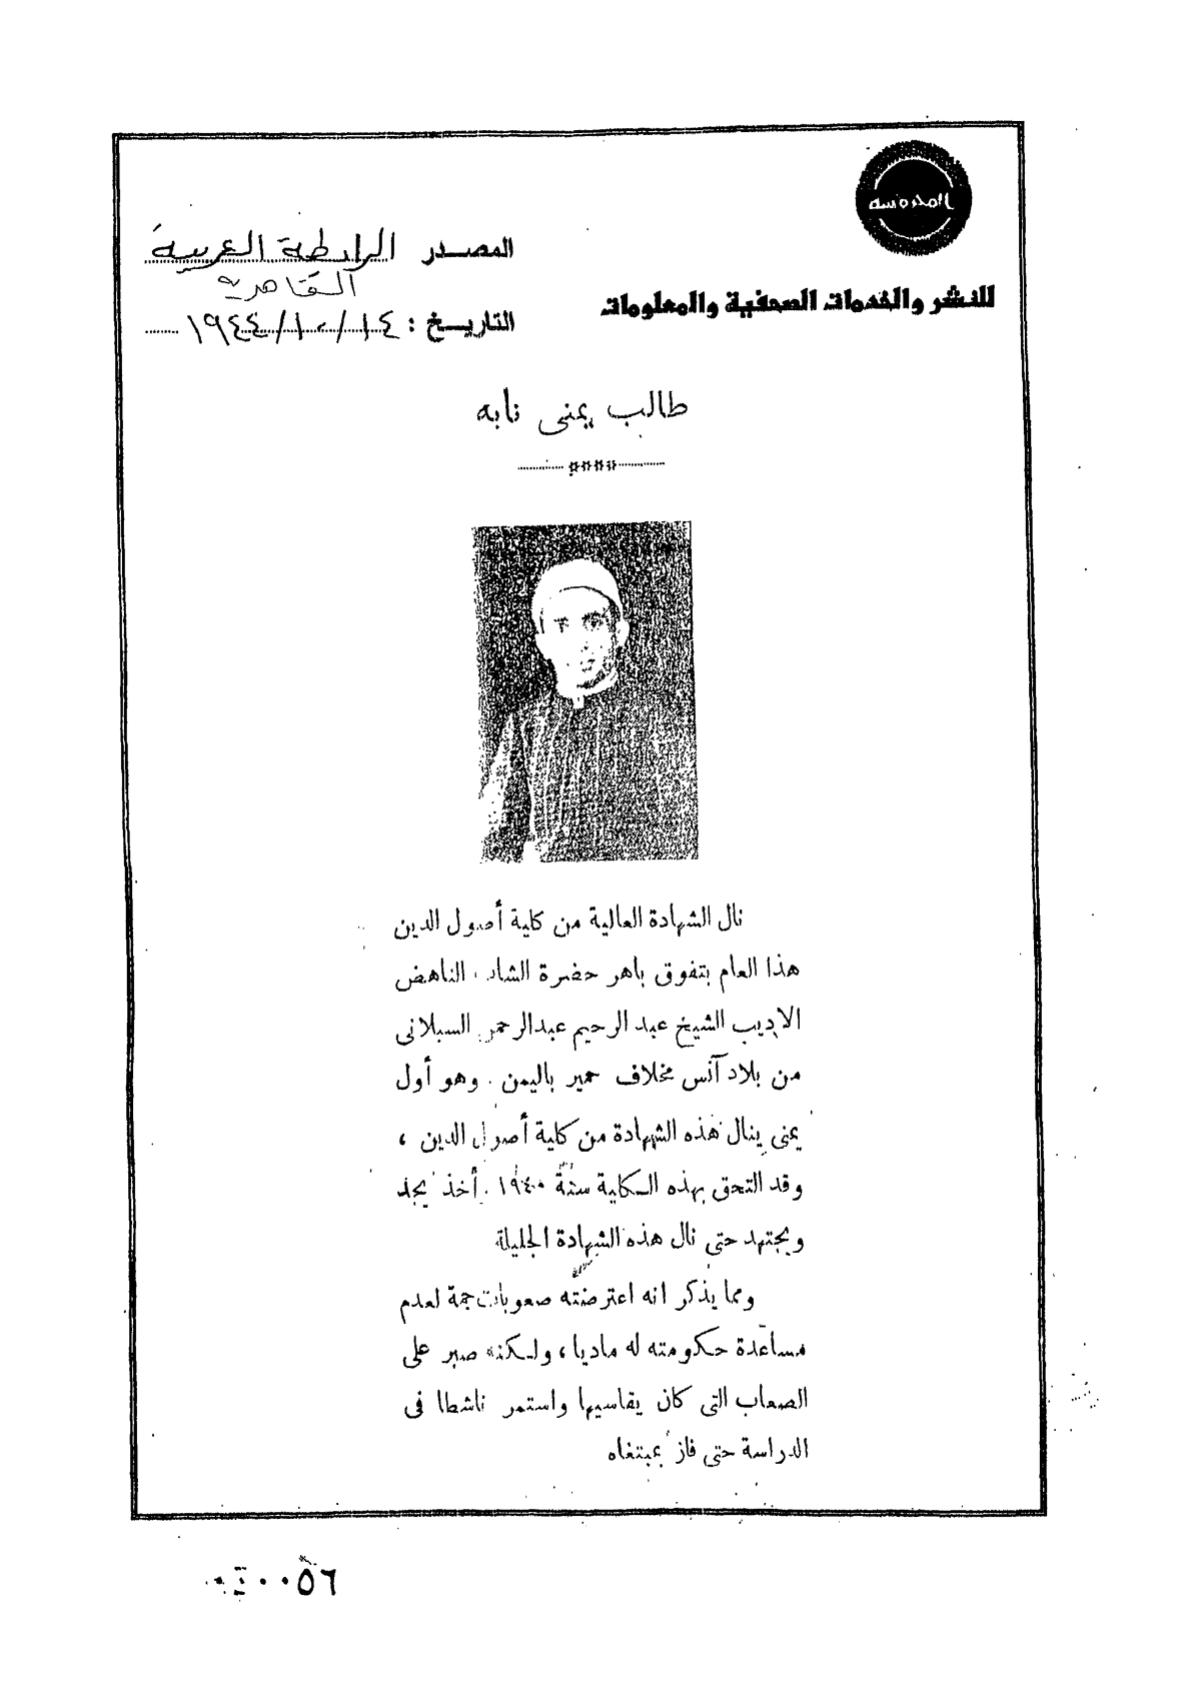 المحروسه
للنشر والخدمات الصحفية والمعلومات
المصدر الرابطة العربية
القاهرية
التاريخ : ١٩٤٤/١٠/١٤
طالب يمنى نابه
نال الشهادة العالية من كلية أصول الدين
هذا العام بتفوق باهر حضرة الشاب الناهض
الاديب الشيخ عبد الرحيم عبدالرحمن السبلانى
من بلاد آنس مخلاف حمير باليمن . وهو أول
يمنى ينال هذه الشهادة من كلية أصول الدين ،
وقد التحق بهذه الكلية سنة ١٩٤٠ . أخذ يجد
ويجتهد حتى نال هذه الشهادة الجليلة
ومما يذكر انه اعترضته صعوبات جمة لعدم
مساعدة حكومته له ماديا ، ولكنه صبر على
الصعاب التى كان يقاسيها واستمر ناشطا فى
الدراسة حتى فاز بمبتغاه